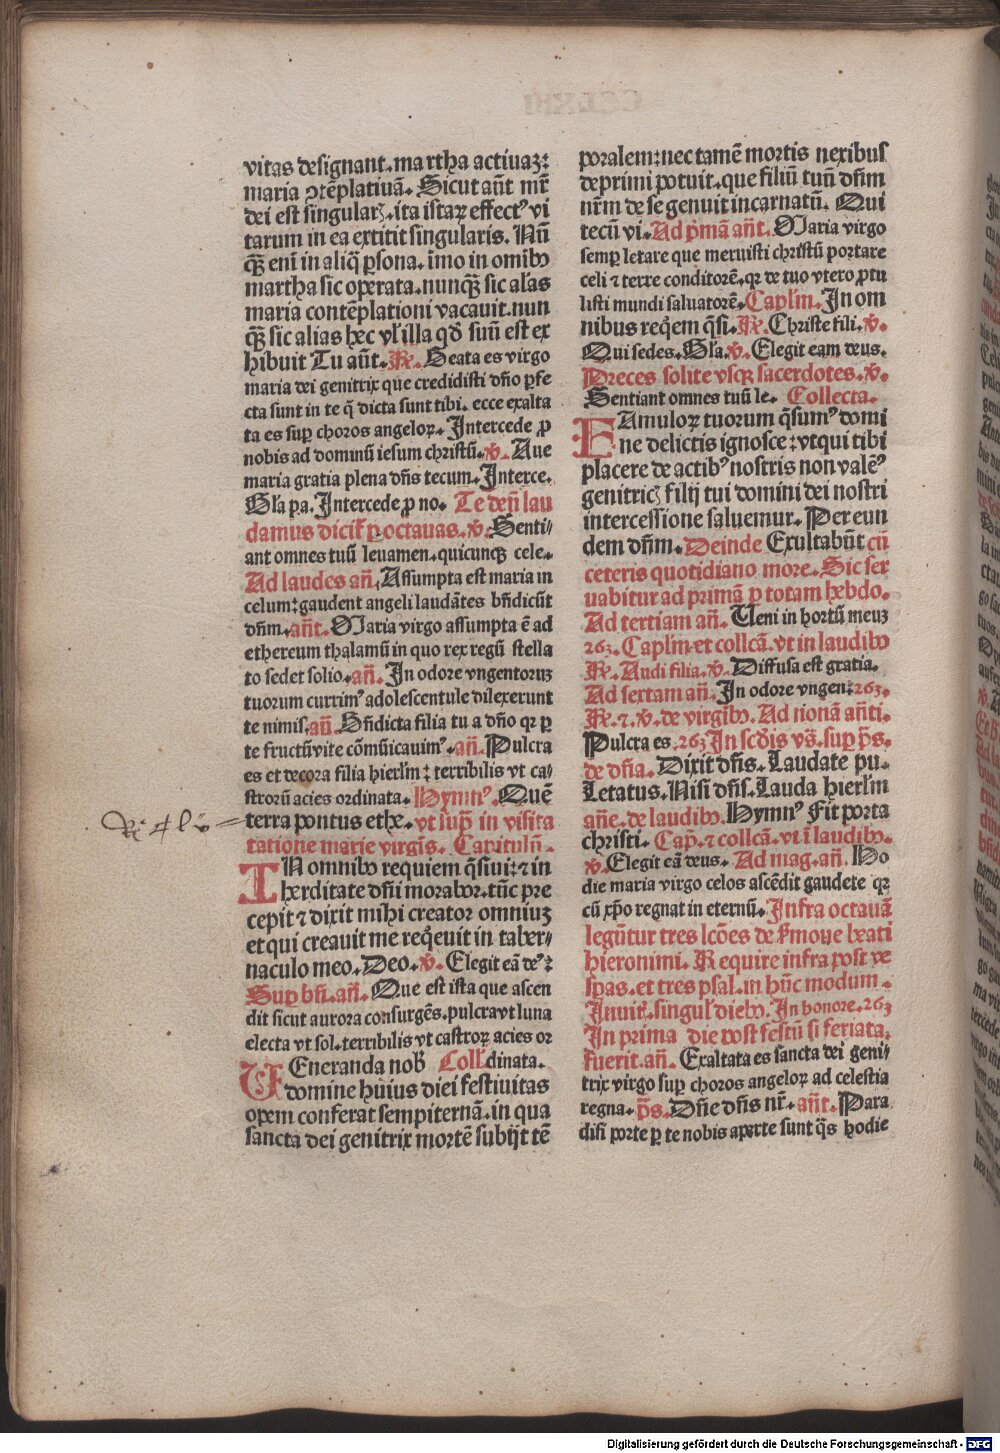 vitas designant. martha actiuaʒ:
maria ↄtēplatiuā. Sicut aūt mr̄
dei est singularꝭ. ita istaꝝ effectꝰ vi
tarum in ea extitit singularis. Nū
qꝫ eni in aliq̄ ꝑsona. imo in omibꝰ
martha sic operata. nunqꝫ sic al̓as
maria contēplationi vacauit. nun
qꝫ sic alias hec vl̓ illa qd̓ suū est ex
hibuit Tu aūt. ℟. Beata es virgo
maria dei genitrix que credidisti dño ꝑfe
cta sunt in te q̄ dicta sunt tibi. ecce exalta
ta es suꝑ choros angeloꝝ. Intercede ꝓ
nobis ad dominū iesum christū. ℣. Aue
maria gratia plena dñs tecum. Interce.
Gl̓a pa. Intercede ꝓ no. Te deū lau
damus dicit̉ ꝑ octauas. ℣. Senti⸗
ant omnes tuū leuamen. quicunqꝫ cele.
Ad laudes añ. Assumpta est maria in
celum: gaudent angeli laudātes bn̄dicūt
dn̄m. añt. Maria virgo assumpta ē ad
ethereum thalamū in quo rex regū stella
to sedet solio. añ. In odore vngentoruʒ
tuorum currimꝰ adolescentule dilexerunt
te nimis. añ. Bn̄dicta filia tu a dño qꝛ ꝑ
te fructū vite cōmūicauimꝰ. añ. Pulcra
es et decora filia hierl̓m: terribilis vt ca⸗
strorū acies ordinata. Hymnꝰ. Quē
terra pontus ethe. vt supͣ in visita
tatione marie virgīs. Capitulū.
IN omnibꝰ requiem q̄siui: ⁊ in
herditate dn̄i moraboꝛ. tūc pre
cepit ⁊ dixit mihi creator omniuʒ
et qui creauit me req̄euit in taber⸗
naculo meo. Deo. ℣. Elegit eā deꝰ:
Suꝑ bn̄. añ. Que est ista que ascen
dit sicut aurora consurgēs. pulcra vt luna
electa vt sol. terribilis vt castroꝝ acies or
VEneranda nob̄ Coll̓ dinata.
domine huius diei festiuitas
opem conferat sempiternā. in qua
sancta dei genitrix mortē subijt tē
poralem: nec tamē mortis nexibus
deprimi potuit. que filiū tuū dn̄m
nr̄m de se genuit incarnatū. Qui
tecū vi. Ad pͥmā añt. Maria virgo
semꝑ letare que meruisti christū portare
celi ⁊ terre conditorē. qꝛ de tuo vtero ꝓtu
listi mundi saluatorē. Capl̓m. In om
nibus req̄em q̄si. ℟. Christe fili. ℣.
Qui sedes. Gl̓a. ℣. Elegit eam deus.
Preces solite vsqꝫ sacerdotes. ℣.
Sentiant omnes tuū le. Collecta.
FAmuloꝝ tuorum q̄sumꝰ domi
ne delictis ignosce: vt qui tibi
placere de actibꝰ nostris non valēꝰ
genitricꝭ filij tui domini dei nostri
intercessione saluemur. Per eun
dem dn̄m. Deinde Exultabūt cū
ceteris quotidiano more. Sic ser
uabitur ad primā ꝑ totam hebdo.
Ad tertiam añ. Ueni in hortū meuʒ
⁊c̓. Capl̓m et collcā. vt in laudibꝰ
℟. Audi filia. ℣. Diffusa est gratia.
Ad sextam añ. In odore vngen: ⁊c̓.
℟. ⁊. ℣. de virgībꝰ. Ad nonā añti.
Pulcra es. ⁊c̓ In scd̓is vs̄. suꝑ p̄s.
de dn̄a. Dixit dn̄s. Laudate pu.
Letatus. Nisi dn̄s. Lauda hierl̓m
añe. de laudibꝰ. Hymnꝰ Fit porta
christi. Cap̄. ⁊ collcā. vt ī laudibꝰ.
℣. Elegit eā deus. Ad mag. añ. Ho
die maria virgo celos ascēdit gaudete qꝛ
cū xp̄o regnat in eternū. Infra octauā
legūtur tres lcōes de s̓mone beati
hieronimi. Require infra post ve
sp̄as. et tres psal. in hūc modum.
Inuit̓. singul̓ diebꝰ. In honore. ⁊c̓
In prima die post festū si feriata.
fuerit. añ. Exaltata es sancta dei geni⸗
trix virgo suꝑ choros angeloꝝ ad celestia
regna. p̄s. Dñe dñs nr̄. añt. Para
disi porte ꝑ te nobis aperte sunt q̄s hodie
Digitalisierung gefördert durch die Deutsche Forschungsgemeinschaft - DFG